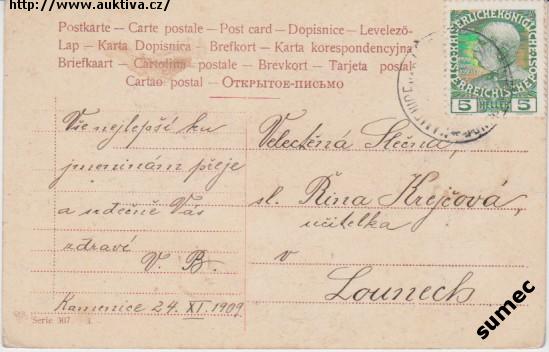 http://www.auktiva.cz/
Postkarte – Carte postale – Post card – Dopisnice – Levelező-
Lap – Karta Dopisnica – Brefkort – Karta korespondencyjna
Briefkaart – Cartolina postale – Brevkort – Tarjeta postal
Cartao postal – Открытое-письмо
5 HELLER 5
Vše nejlepší ku
jmeninám přeje
a uděčně Vás
zdraví
V. B.
Kamenice 24. XI. 1909.
Velectěná Slečna,
sl. Řina Krejčová,
učitelka
v
Lounech
Serie 307
sumec